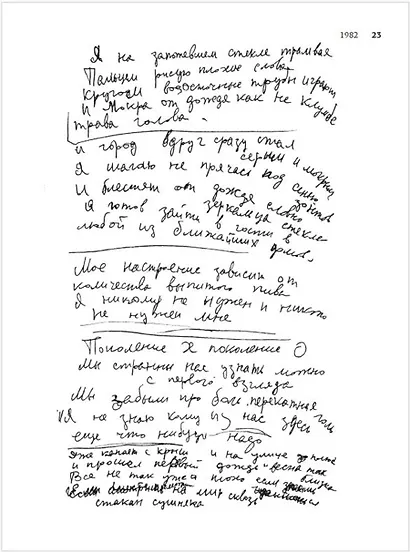 1982 23
Я на запотевшем стекле трамвая
Пальцем рисую плохие слова
Кругом водосточные трубы играют
И мокра от дождя как не клумбе
трава голова.
И город вдруг сразу стал
серым и мокрым
Я шагаю не прячась под
И блестят от дождя словно
зеркальца стекла
Я готов зайти в гости в
любой из ближайших домов.
Мое настроение зависит от
количества выпитого пива
Я никому не нужен и никто
не нужен мне
Поколение X поколение О
Мы странны нас узнать можно
с первого взгляда
Мы забыли про бога перекатная голь
Я не знаю кому из нас здесь
еще что нибудь надо
Уже капает с крыш и на улице
и прошел первый дождь весна так близка
Все не так уж и плохо если
на мир сквозь
стакан сушняка